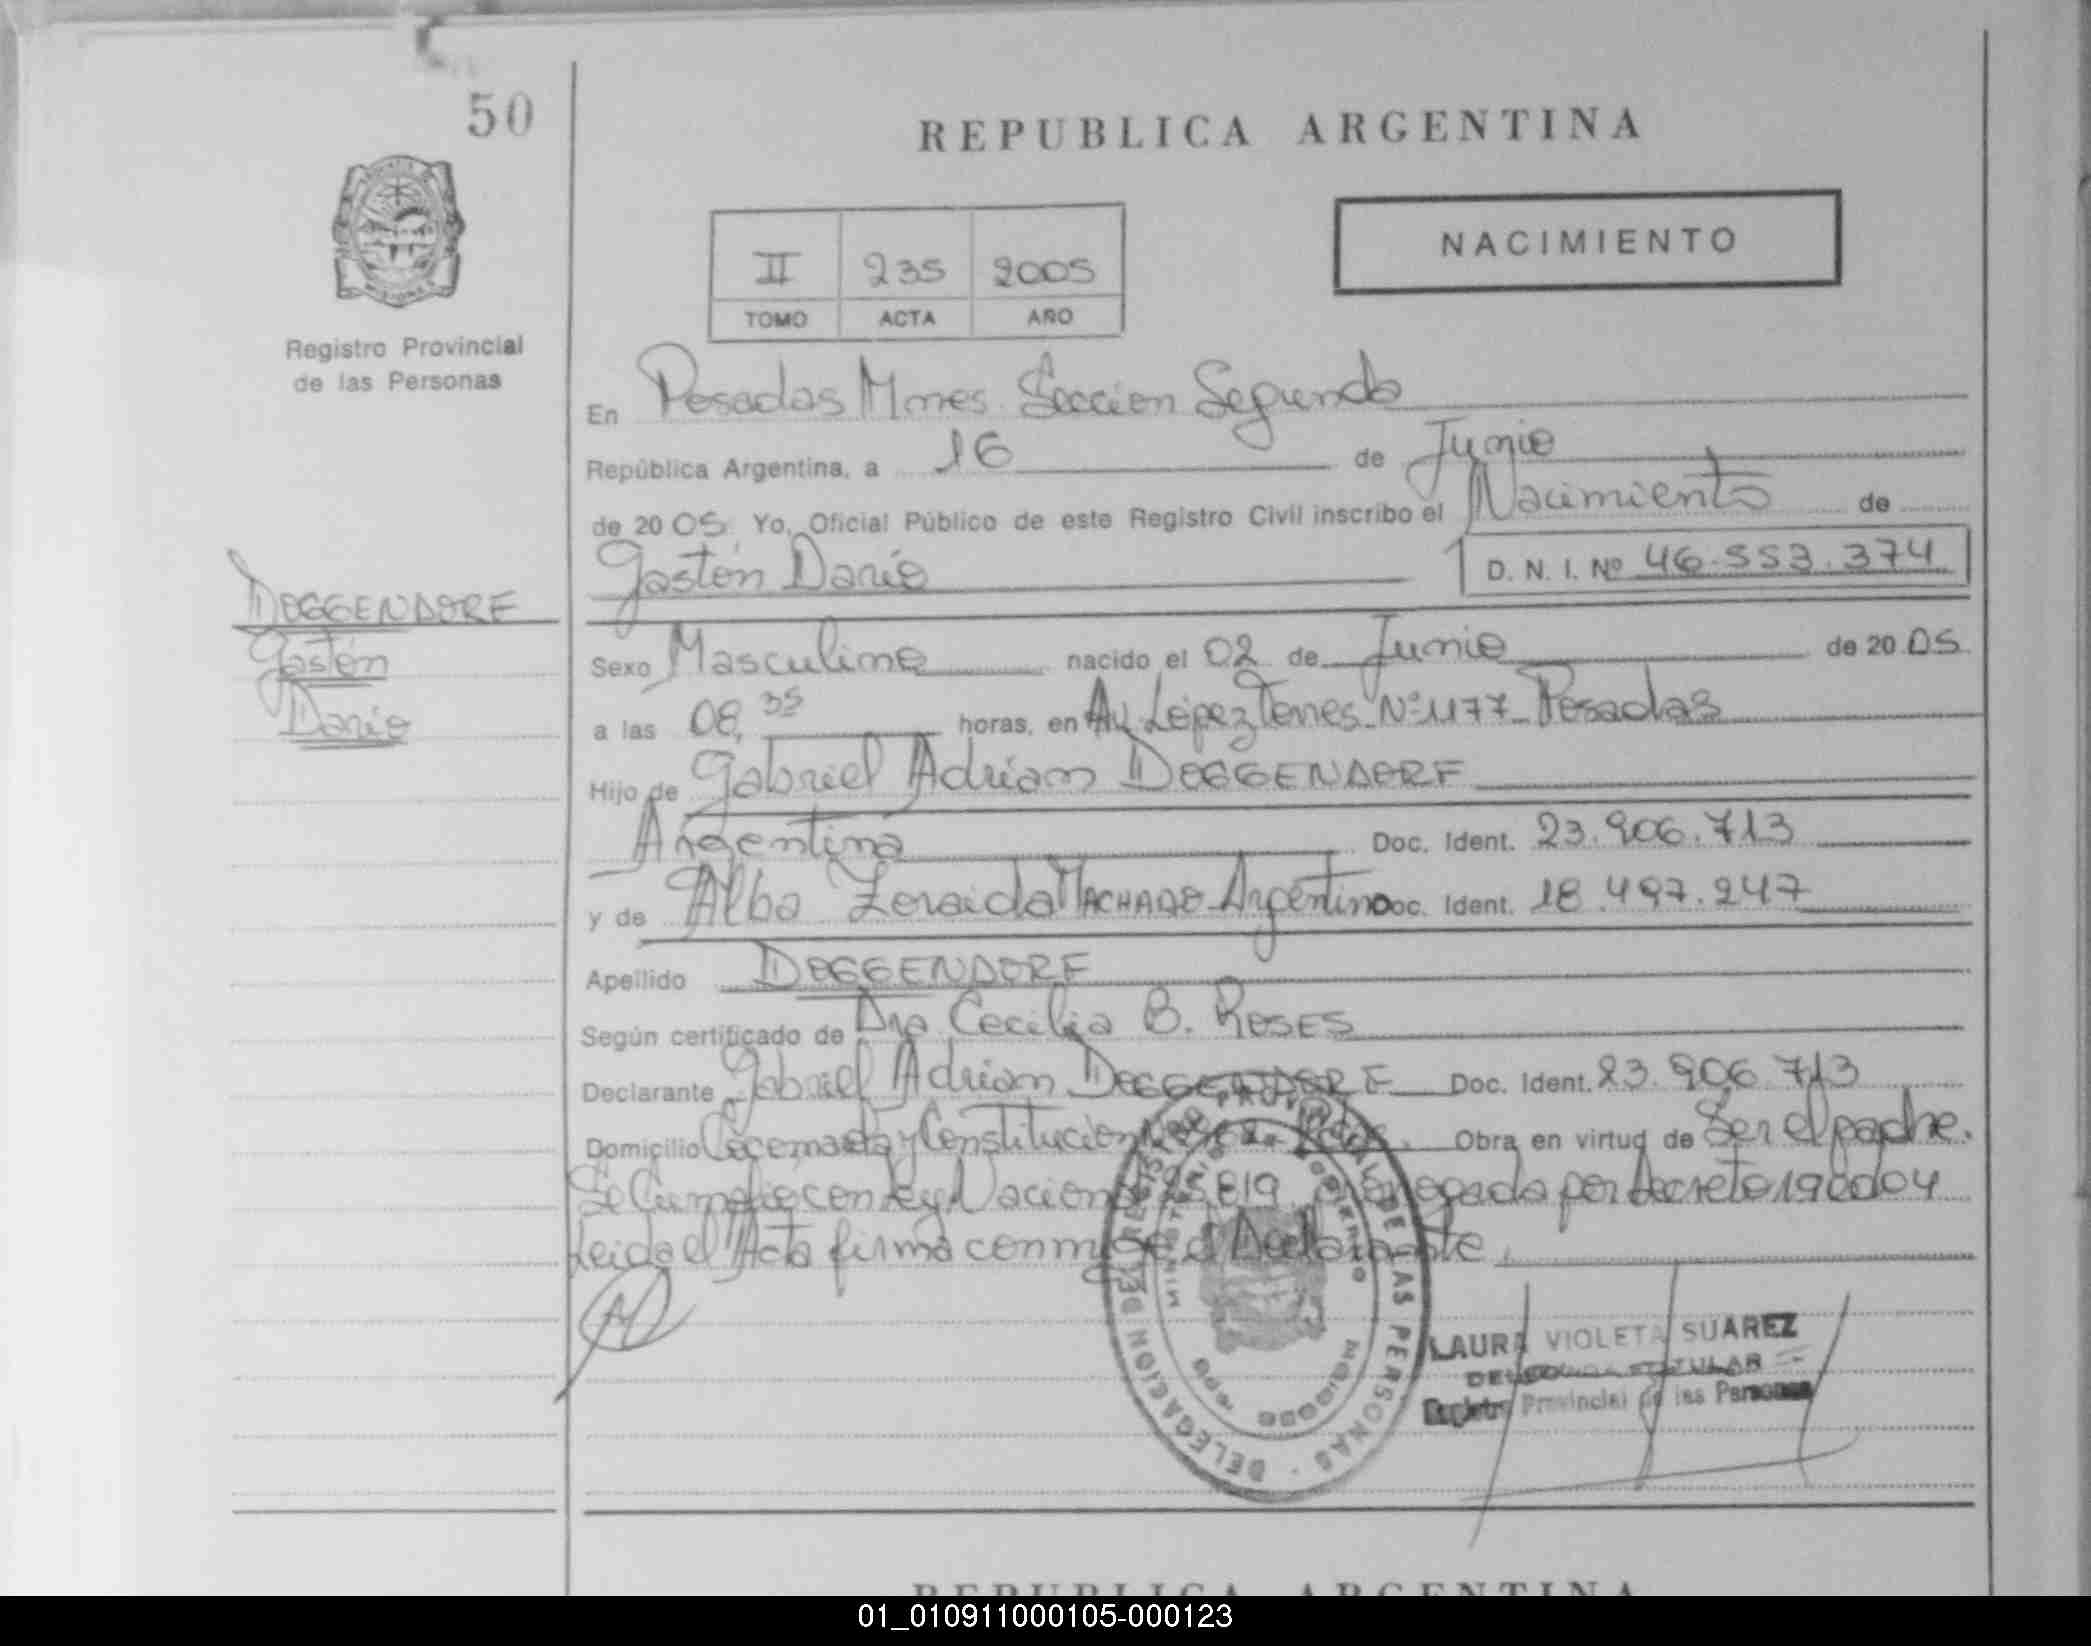 50
REPUBLICA ARGENTINA
NACIMIENTO
II 235 2005
TOMO ACTA AÑO
Registro Provincial
de las Personas
En Posadas Mnes. Seccion Segunda
República Argentina, a 16 de Junio
de 20 05. Yo, Oficial Público de este Registro Civil inscribo el Nacimiento de
Gastón Darío
D. N. I. Nº 46.553.374
DEGGENDORF
Gastón
Darío
Sexo Masculino nacido el 02 de Junio de 20 05
a las 08,35 horas, en Av. López Torres Nº 1177 Posadas
Hijo de Gabriel Adrian DEGGENDORF
Argentina Doc. Ident. 23.906.713
y de Alba Zoraida MACHADO Argentina Doc. Ident. 18.497.247
Apellido DEGGENDORF
Según certificado de Dra Cecilia B. ROSES
Declarante Gabriel Adrian DEGGENDORF Doc. Ident. 23.906.713
Domicilio y Constitución Obra en virtud de Ser el padre.
Se Cumplio con Ley Nacional por decreto 190/04
Leida el Acta firma conmigo el Declarante
DELEGACION DEL REGISTRO PROVINCIAL DE LAS PERSONAS
MINISTERIO DE GOBIERNO
MISIONES
LAURA VIOLETA SUAREZ
DELEGADA TITULAR
Registro Provincial de las Personas
REPUBLICA ARGENTINA
01_010911000105-000123